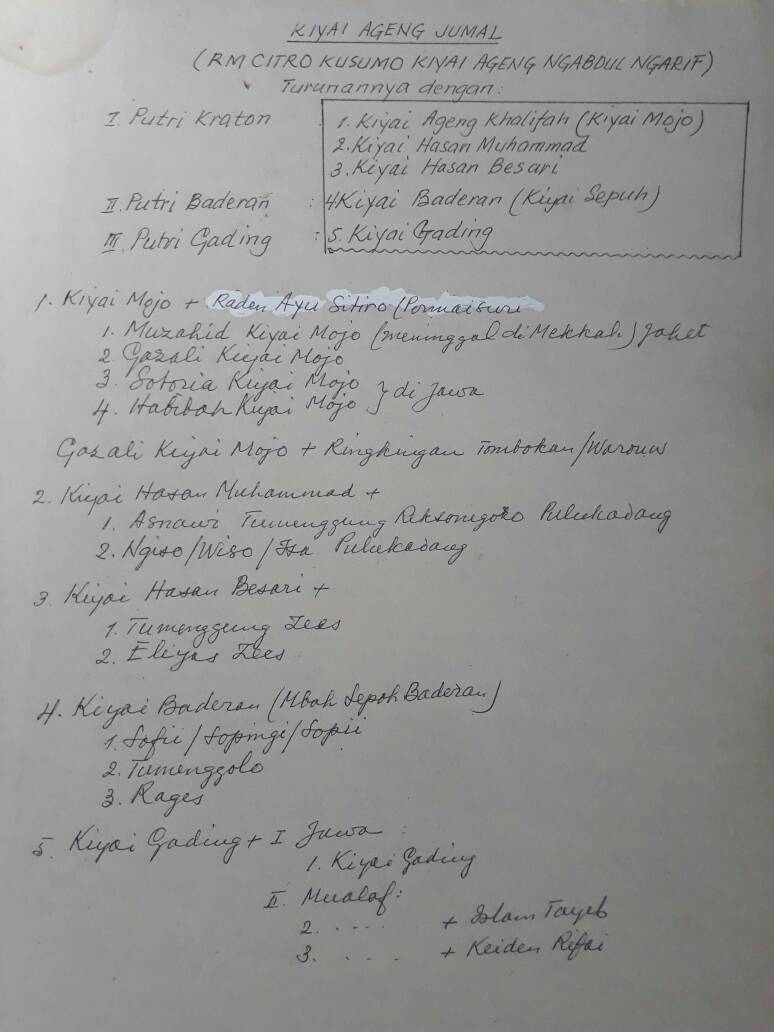 KIYAI AGENG JUMAL
(RM CITRO KUSUMO KIYAI AGENG NGABDUL NGARIF)
Turunannya dengan:
I. Putri Kraton : 1. Kiyai Ageng Khalifah (Kiyai Mojo)
2. Kiyai Hasan Muhammad
3. Kiyai Hasan Besari
II. Putri Baderan : 4 Kiyai Baderan (Kiyai Sepuh)
III. Putri Gading : 5. Kiyai Gading
1. Kiyai Mojo + Raden Ayu Sitiro (Permaisuri
1. Muzahid Kiyai Mojo (meninggal di Mekkah)
2. Gazali Kiyai Mojo
3. Sotoria Kiyai Mojo
4. Habibah Kiyai Mojo } di Jawa
Gazali Kiyai Mojo + Ringkingan Tombokan/Warouw
2. Kiyai Hasan Muhammad +
1. Asnawi Tumenggung Reksonegoro Pulukadang
2. Ngiso/Wiso/Isa Pulukadang
3. Kiyai Hasan Besari +
1. Tumenggung Zees
2. Eliyas Zees
4. Kiyai Baderan (Mbah Sepoh Baderan)
1. Safii/Sopingi/Sopii
2. Tumenggolo
3. Rages
5. Kiyai Gading + I Jawa :
1. Kiyai Gading
II. Mualaf:
2. ..... + Islam Tayeb
3. .... + Keiden Rifai